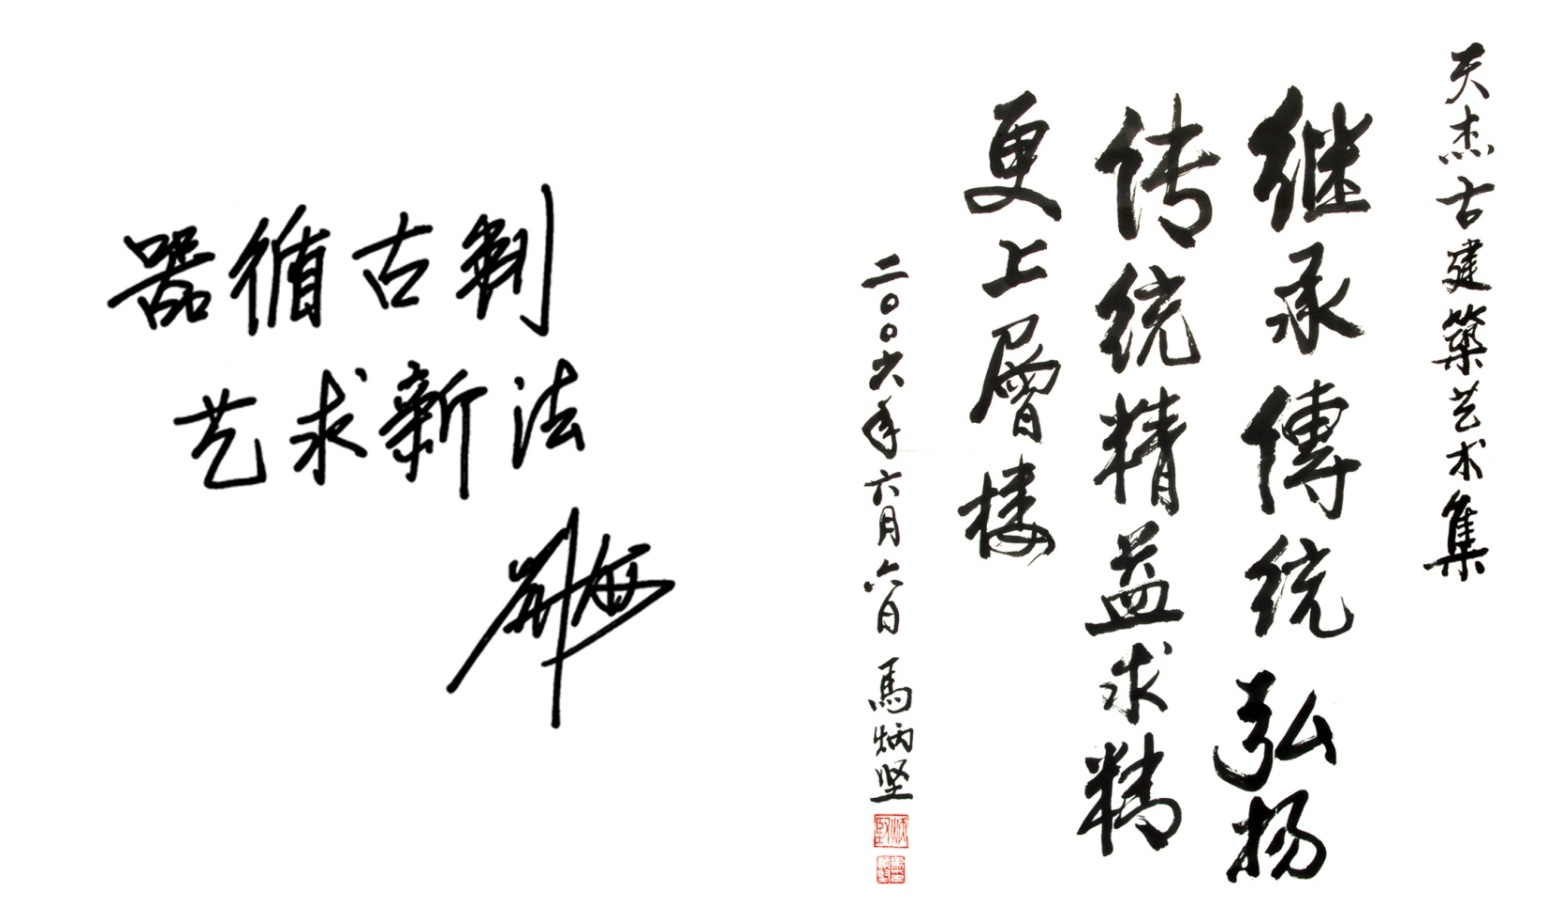 器循古制
艺求新法
天杰古建築艺术集
继承傳统弘扬
传统精益求精
更上層楼
二〇〇六年六月六日 馬炳坚